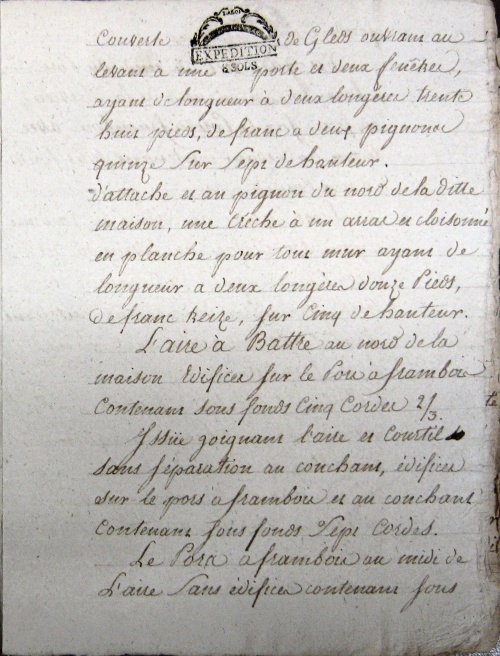 EXPEDITION
8 SOLS
Couverte de Gleds ouvrant au
levant à une porte et deux fenêtres,
ayant de longueur à deux longères trente
huit pieds, de franc a deux pignons
quinze sur sept de hauteur.
D'attache et au pignon du nord de la ditte
maison, une crêche à un arras et cloisonné
en planche pour tout mur ayant de
longueur a deux longères douze Pieds,
de franc treize, sur Cinq de hauteur.
L'aire à Battre au nord de la
maison Edifices sur le Pors à frambois
Contenant sous fonds Cinq Cordes 2/3.
Issüe joignant l'aire et Courtil
sans séparation au couchant, édifices
sur le pors à frambois et au couchant
Contenant sous fonds Sept Cordes.
Le Pors à frambois au midi de
L'aire Sans édifices contenant sous